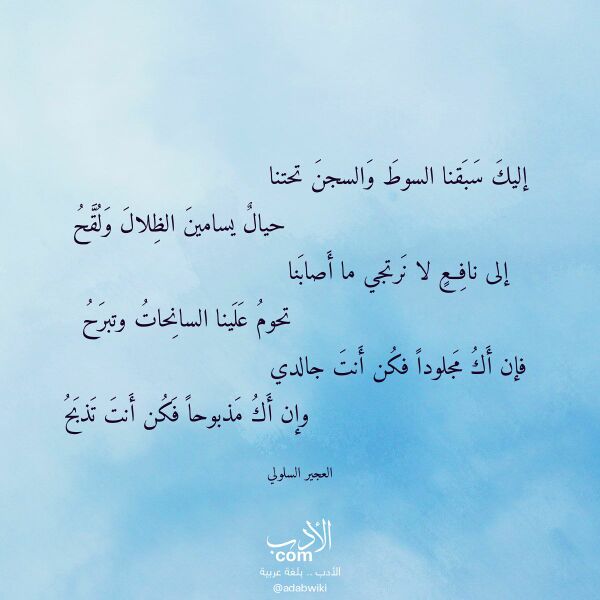 إليكَ سَبَقنا السوطَ وَالسجنَ تحتنا
حيالٌ يسامينَ الظِلالَ وَلُقَّحُ
إلى نافِعٍ لا نَرتجي ما أَصابَنا
تحومُ عَلَينا السانِحاتُ وتبرَحُ
فإن أَكُ مَجلوداً فكُن أَنتَ جالدي
وإن أَكُ مَذبوحاً فَكُن أَنتَ تَذبَحُ
العجير السلولي
الأدب
com
الأدب .. بلغة عربية
@adabwiki